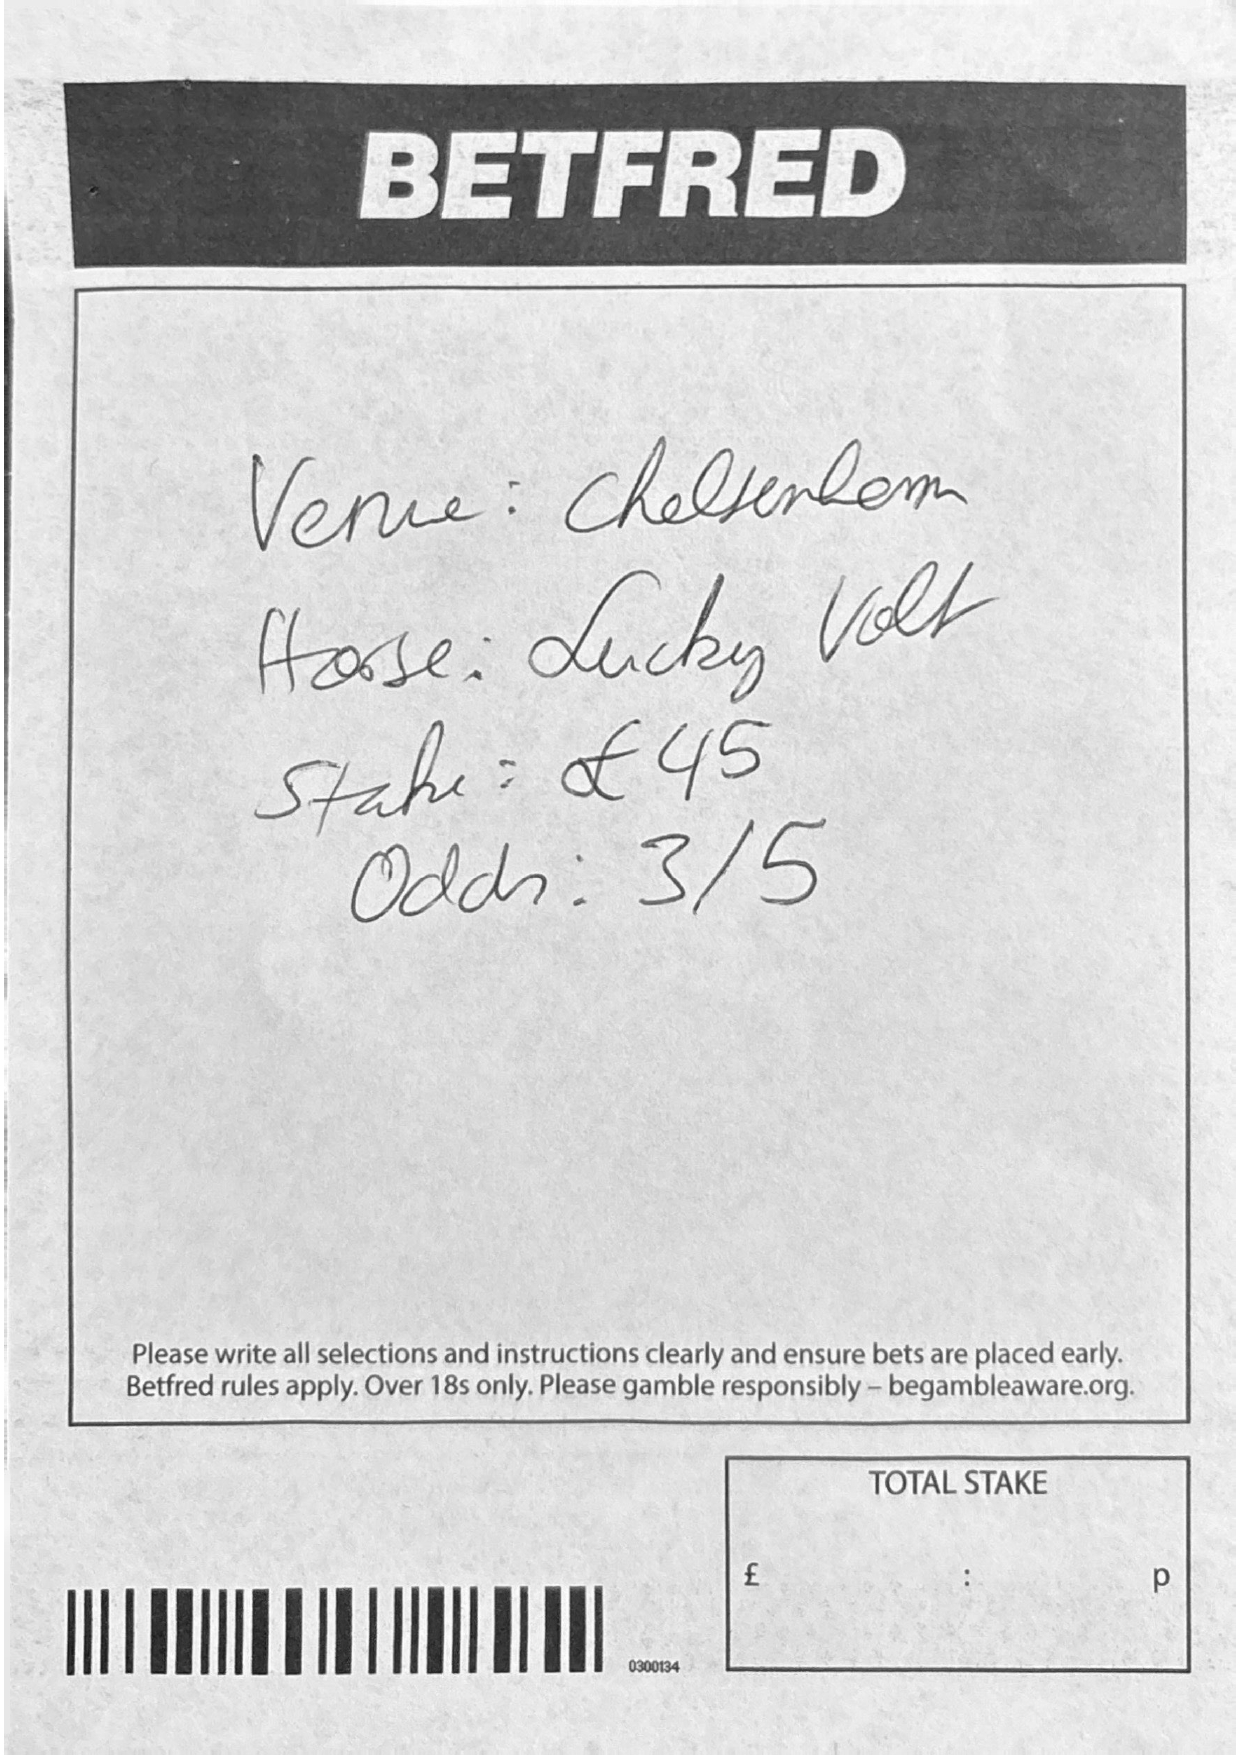 BETFRED
Venue: Cheltenham
Horse: Lucky Volt
Stake: £45
Odds: 3/5
Please write all selections and instructions clearly and ensure bets are placed early.
Betfred rules apply. Over 18s only. Please gamble responsibly – begambleaware.org.
TOTAL STAKE
£ : p
0300134